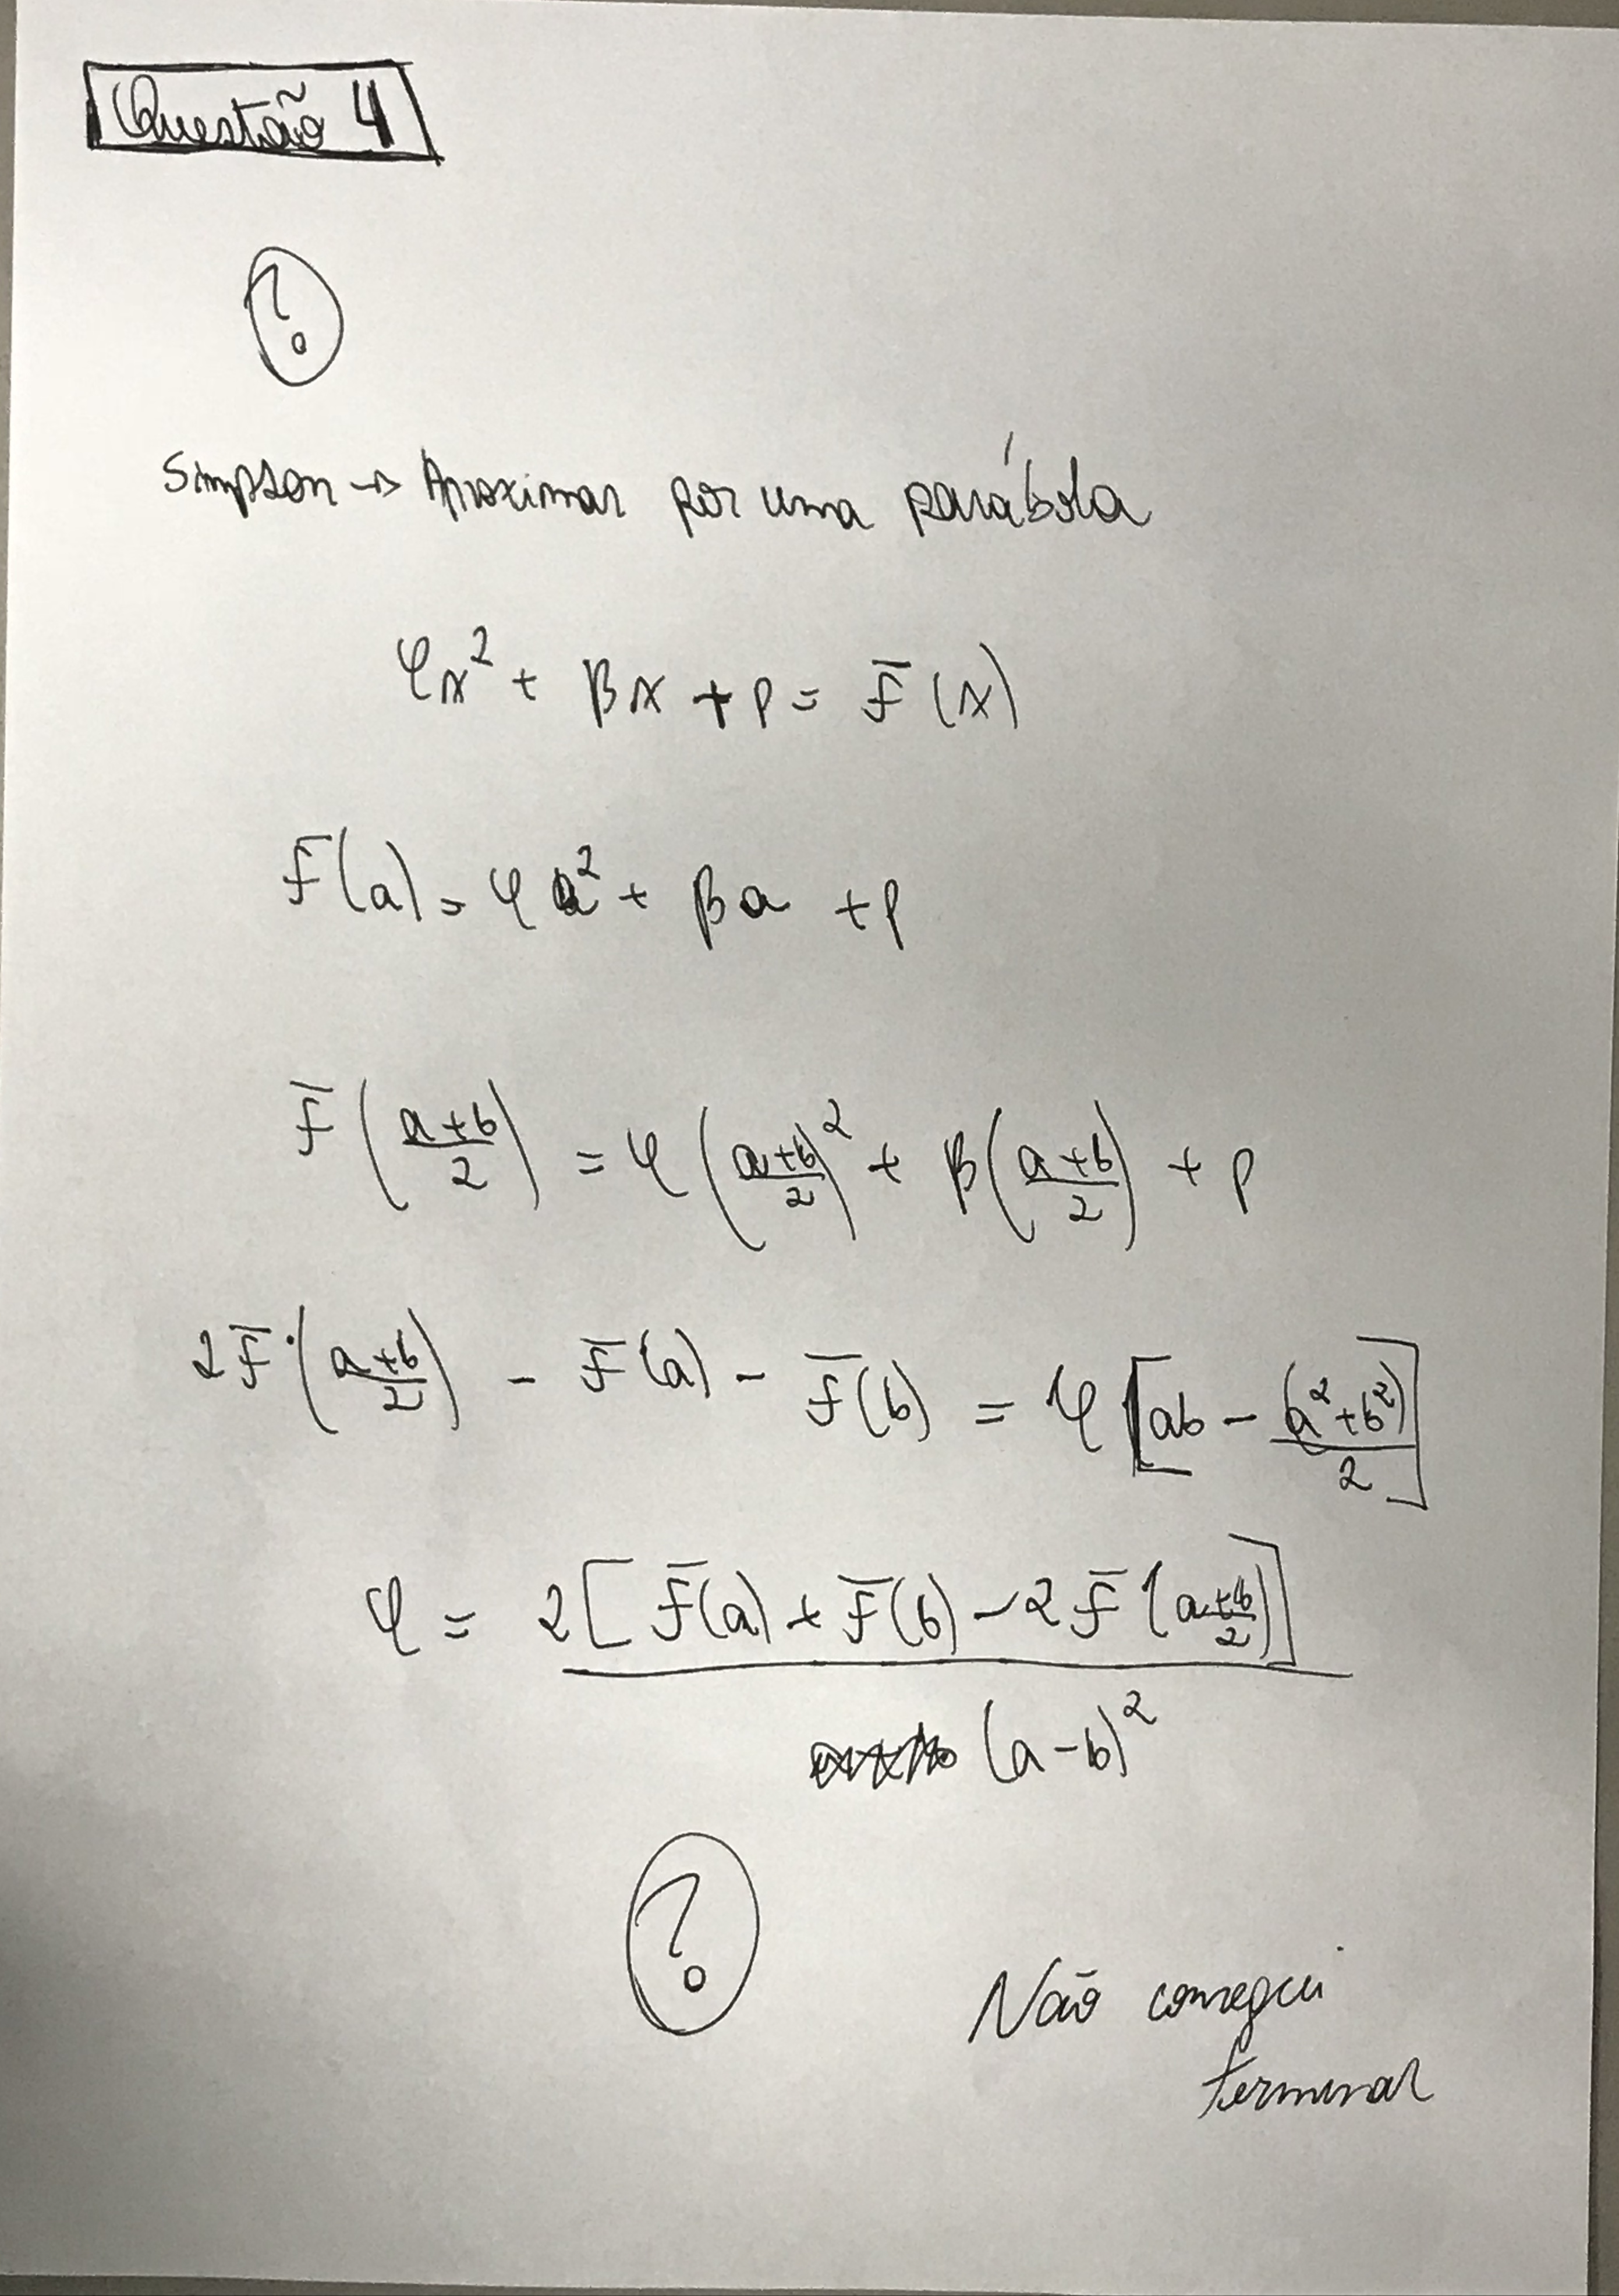 Questão 4
?
Simpson → Aproximar por uma parábola
φx² + βx + ρ = F̄(x)
F̄(a) = φa² + βa + ρ
F̄((a+b)/2) = φ((a+b)/2)² + β((a+b)/2) + ρ
2F̄((a+b)/2) - F̄(a) - F̄(b) = φ[ab - (a²+b²)/2]
φ = 2[F̄(a) + F̄(b) - 2F̄((a+b)/2)]
(a-b)²
?
Não consegui
terminar